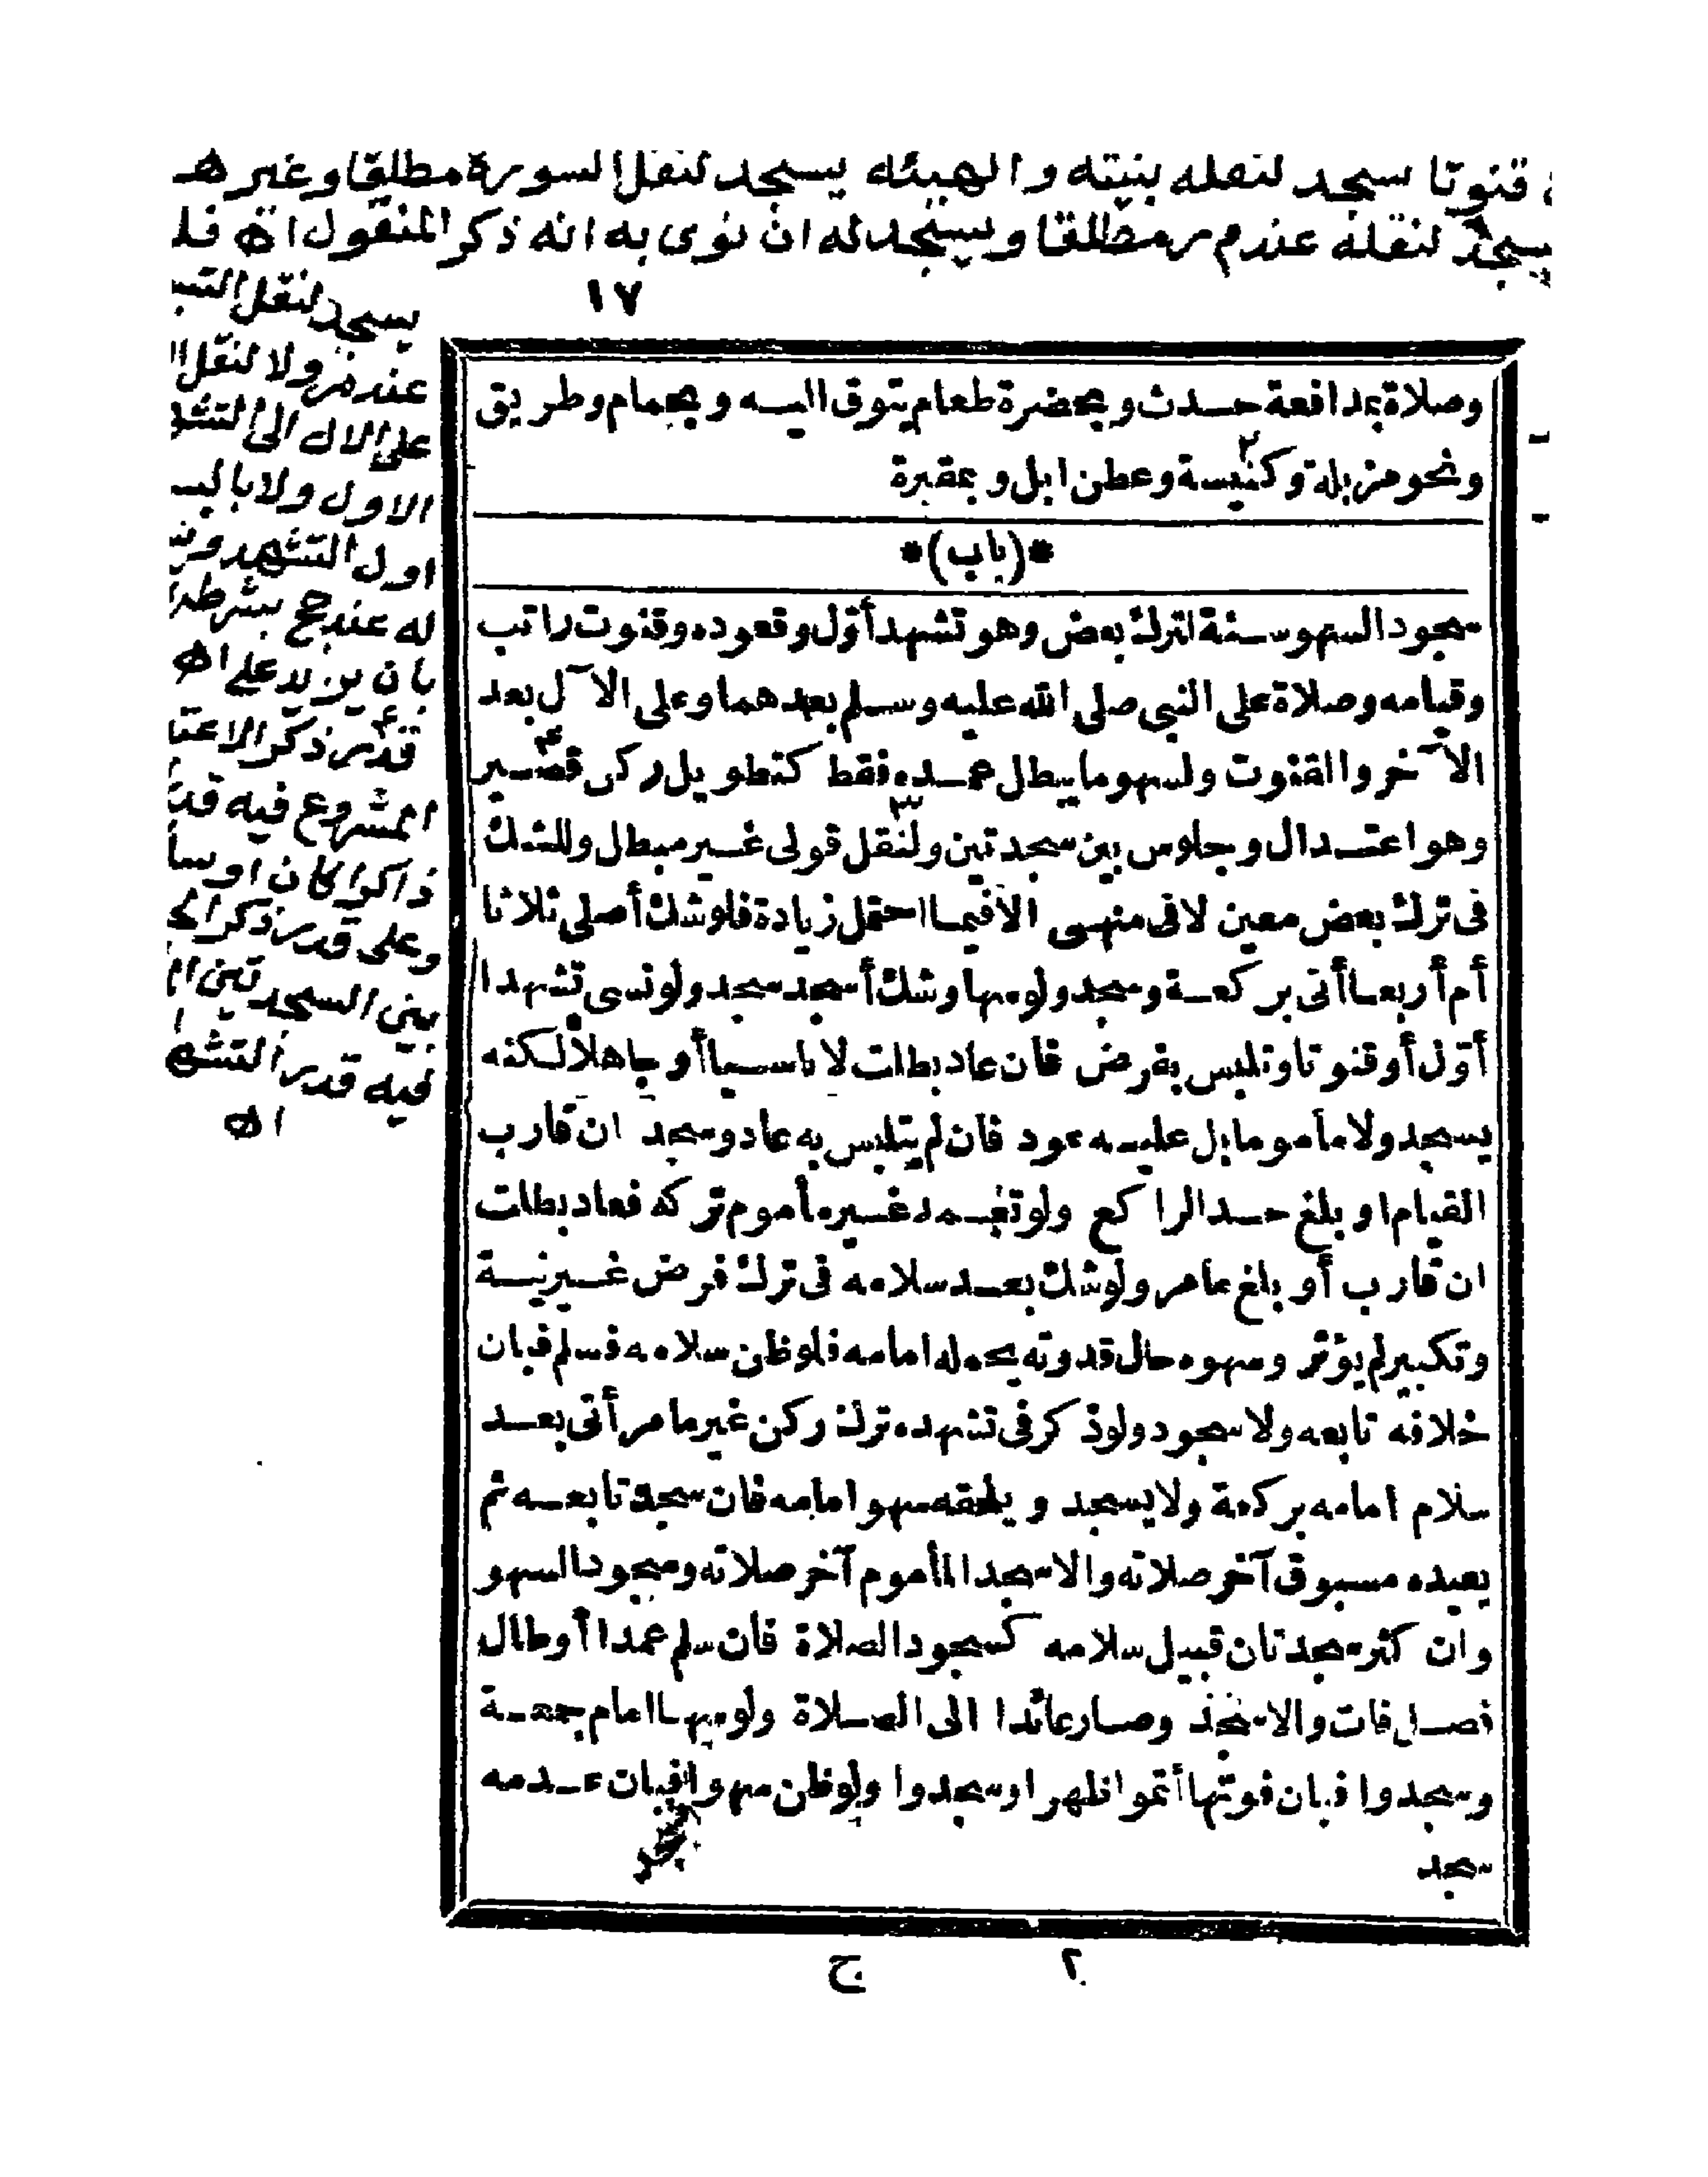 قنوتا سجد لنقله بنيته والهيئه يسجد لنقل السورة مطلقا وغيرها
يسجد لنقله عند م ر مطلقا ويسجد له ان نوى به انه ذكر المنقول اه
١٧
يسجد لنقل
عند م ر ولا لنقل
على الال الى
الاول ولا
اول التشهد
له عند حج بشرطه
بان يزيد على
قدر ذكر
المشروع فيه
ذاكرا كان او
وعلى قدر ذكر
بين السجدتين
فيه قدر التشهد
اه
وصلاة بمدافعة حدث وبحضرة طعام يتوق اليه وبحمام وطريق
ونحو مزبلة وكنيسة وعطن ابل وبمقبرة
٢
*(باب)*
سجود السهو سنة لترك بعض وهو تشهد أوّل وقعوده وقنوت راتب
وقيامه وصلاة على النبي صلى الله عليه وسلم بعدهما وعلى الآل بعد
الآخر والقنوت ولسهو ما يبطل عمده فقط كتطويل ركن قصير
٤
وهو اعتدال وجلوس بين سجدتين ولنقل قولى غير مبطل وللشك
٣
فى ترك بعض معين لا فى منهى الا فيما احتمل زيادة فلو شك أصلى ثلاثا
أم أربعا أتى بركعة وسجد ولو سها وشك أسجد سجد ولو نسى تشهدا
أوّل أو قنوتا وتلبس بفرض فان عاد بطلت لا ناسيا أو جاهلا لكنه
يسجد ولا مأموما بل عليه عود فان لم يتلبس به عاد وسجد ان قارب
القيام او بلغ حد الراكع ولو تعمد غير مأموم تركه فعاد بطلت
ان قارب أو بلغ مامر ولو شك بعد سلامه فى ترك فرض غير نية
وتكبير لم يؤثر وسهوه حال قدوته يحمله امامه فلو ظن سلامه فسلم فبان
خلافه تابعه ولا سجود ولو ذكر فى تشهده ترك ركن غير مامر أتى بعد
سلام امامه بركعة ولا يسجد ويلحقه سهو امامه فان سجد تابعه ثم
يعيده مسبوق آخر صلاته والا سجد المأموم آخر صلاته وسجود السهو
وان كثر سجدتان قبيل سلامه كسجود الصلاة فان سلم عمدا أو طال
فصل فات والا سجد وصار عائدا الى الصلاة ولو سها امام جمعة
وسجدوا فبان فوتها أتموا ظهرا وسجدوا ولو ظن سهوا فبان عدمه
سجد
٢ ج